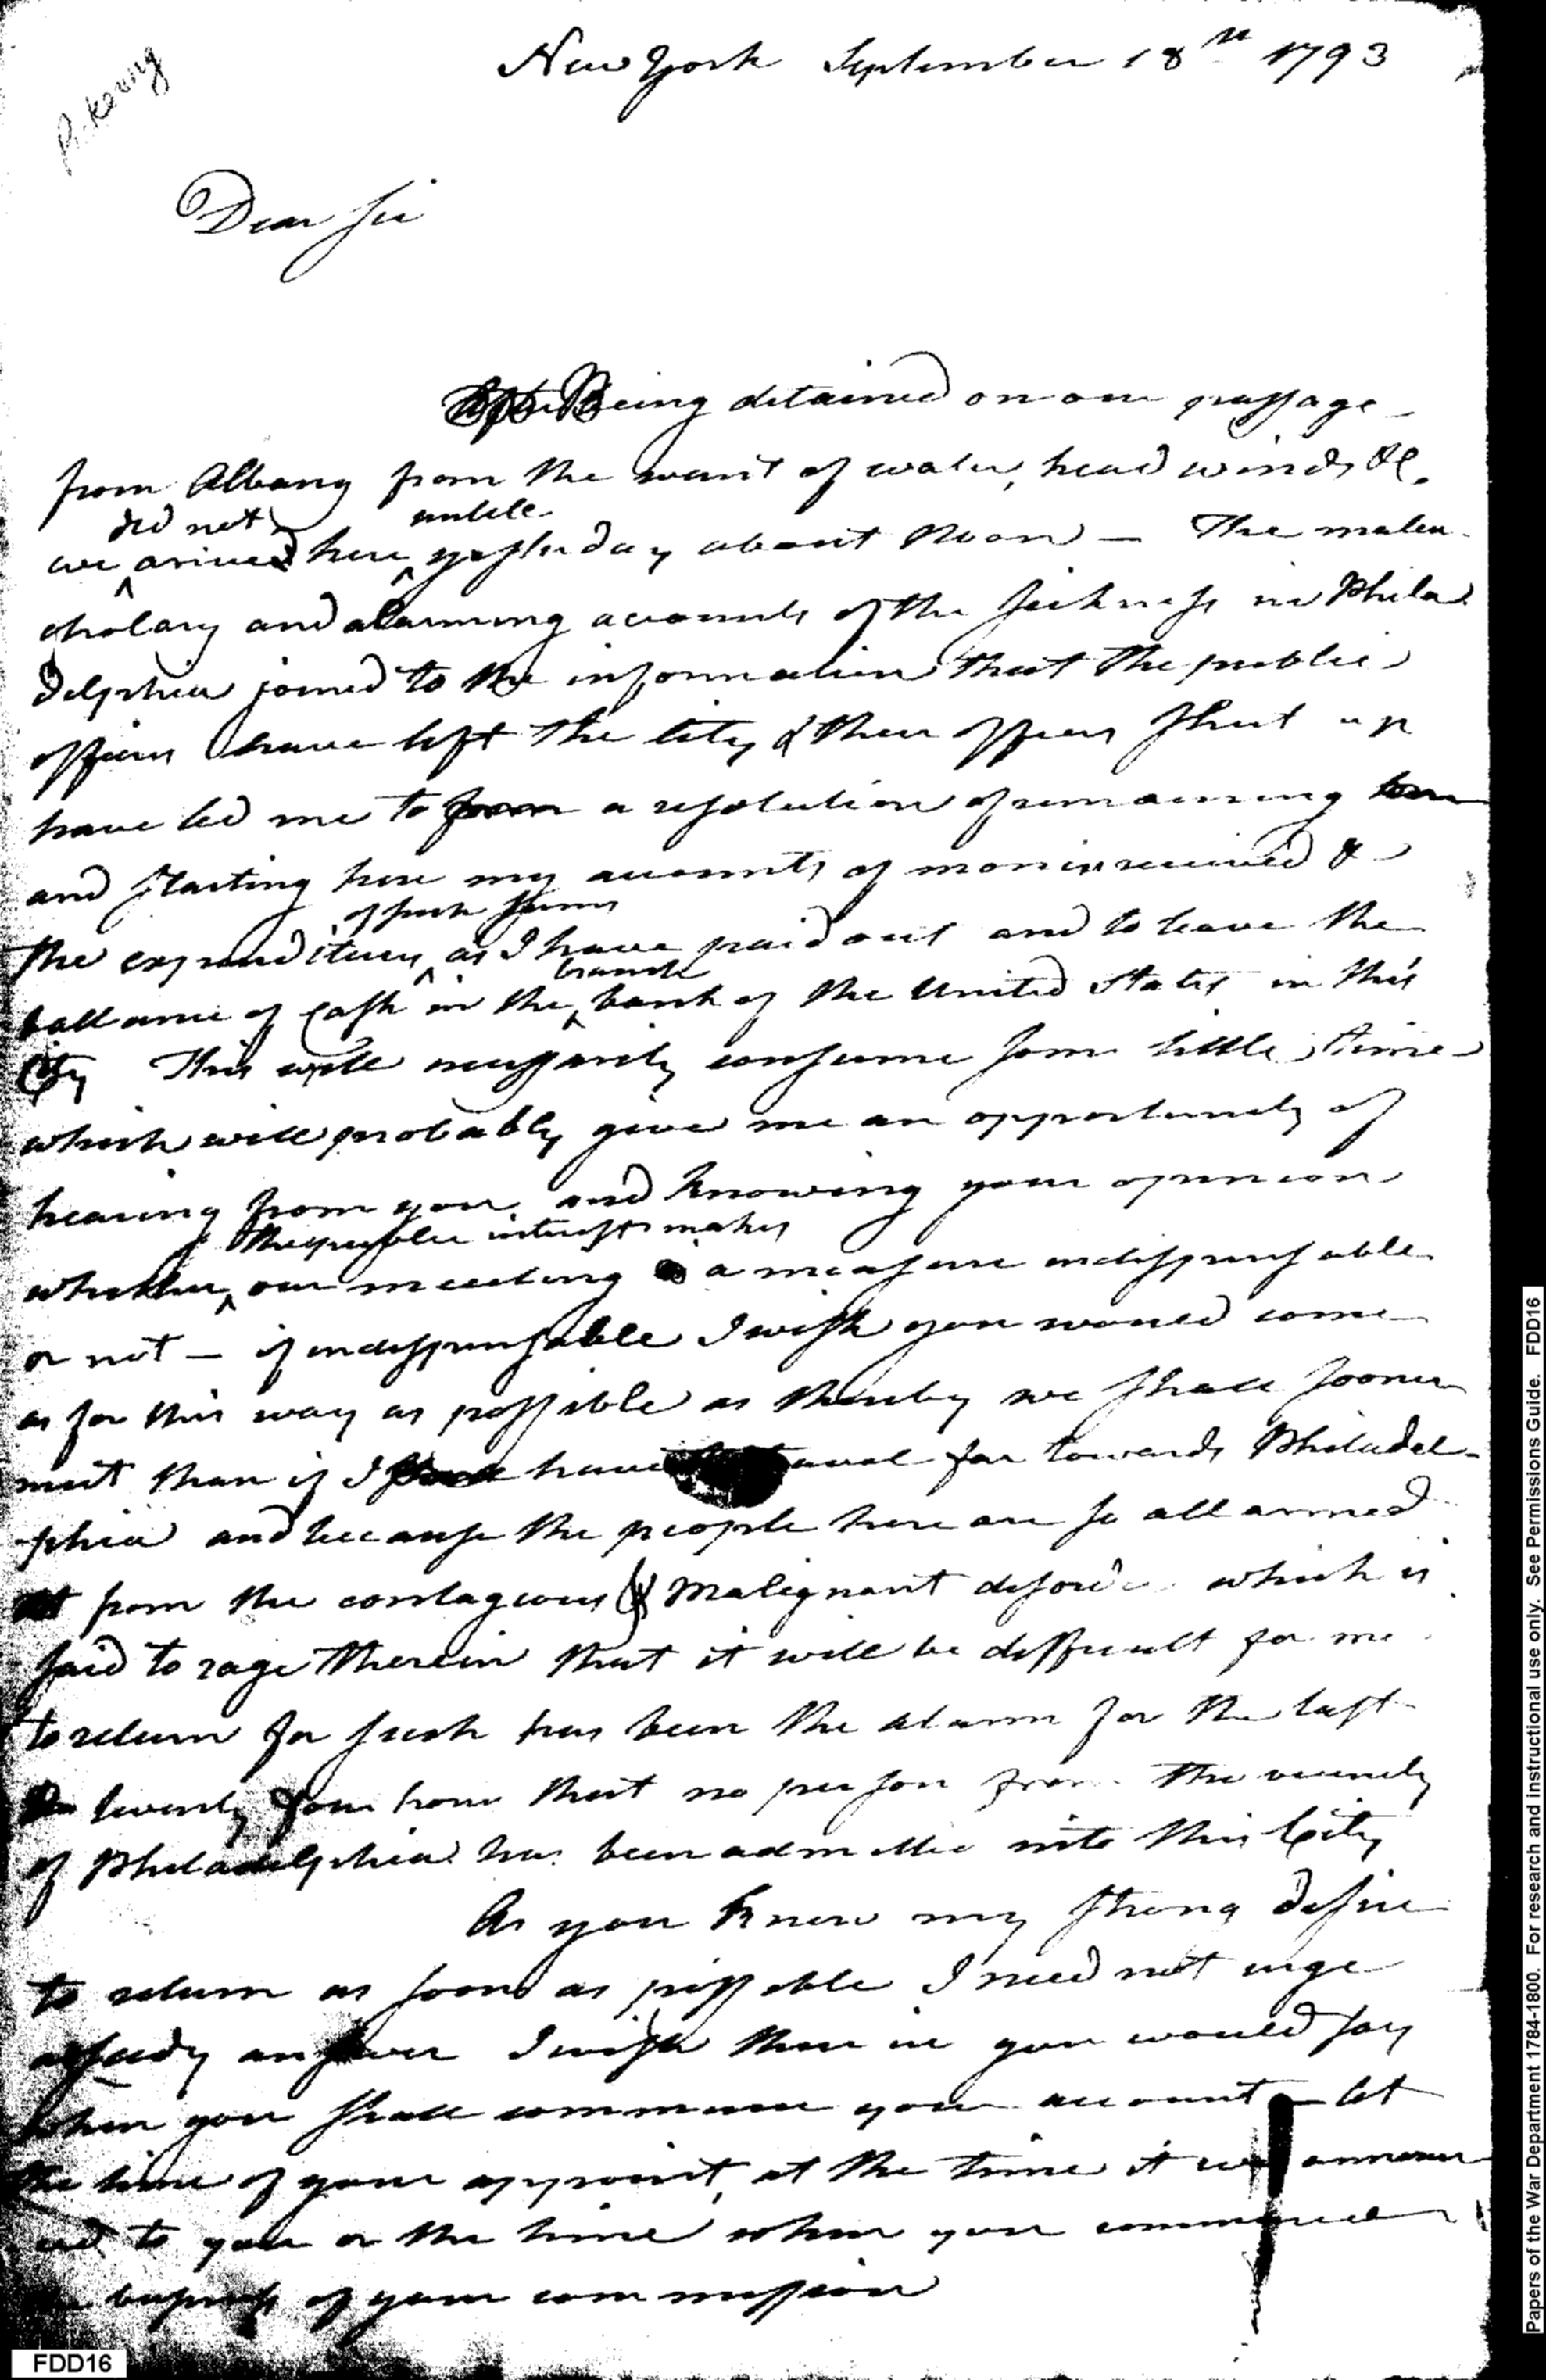 Pickering
New York September 18th 1793
Dear Sir
Being detained on our passage
from Albany from the want of water, head winds &c.
did not untill
we arrived here yesterday about Noon — The melan-
cholary and alarming accounts of the sickness in Phila
delphia joined to the information that the public
officers have left the City & their offices shut up
have led me to form a resolution of remaining
and stating here my accounts of monies received &
of such sums
the expenditures as I have paid out and to leave the
branch
ballance of Cash in the bank of the United States in this
City This will necessarily consume some little time
which will probably give me an opportunity of
hearing from you and knowing your opinion
the public interest makes
whether our meeting a measure indispensable
or not — if indispensable I wish you would come
as far this way as possible as thereby we shall sooner
meet than if I have travel far towards Philadel-
-phia and because the people here are so allarmed
from the contagious & Malignant disorder which is
said to rage therein that it will be difficult for me
to return for such has been the alarm for the last
twenty four hours that no person from the vicinity
of Philadelphia has been admitted into this City
As you know my strong desire
to return as soon as possible I need not urge
a speedy answer I wish there in you would say
when you shall commence your account — let
the time of your appoint, at the time it was announ
ced to you or the time when you commenced
the business of your commission
FDD16
Papers of the War Department 1784-1800. For research and instructional use only. See Permissions Guide. FDD16